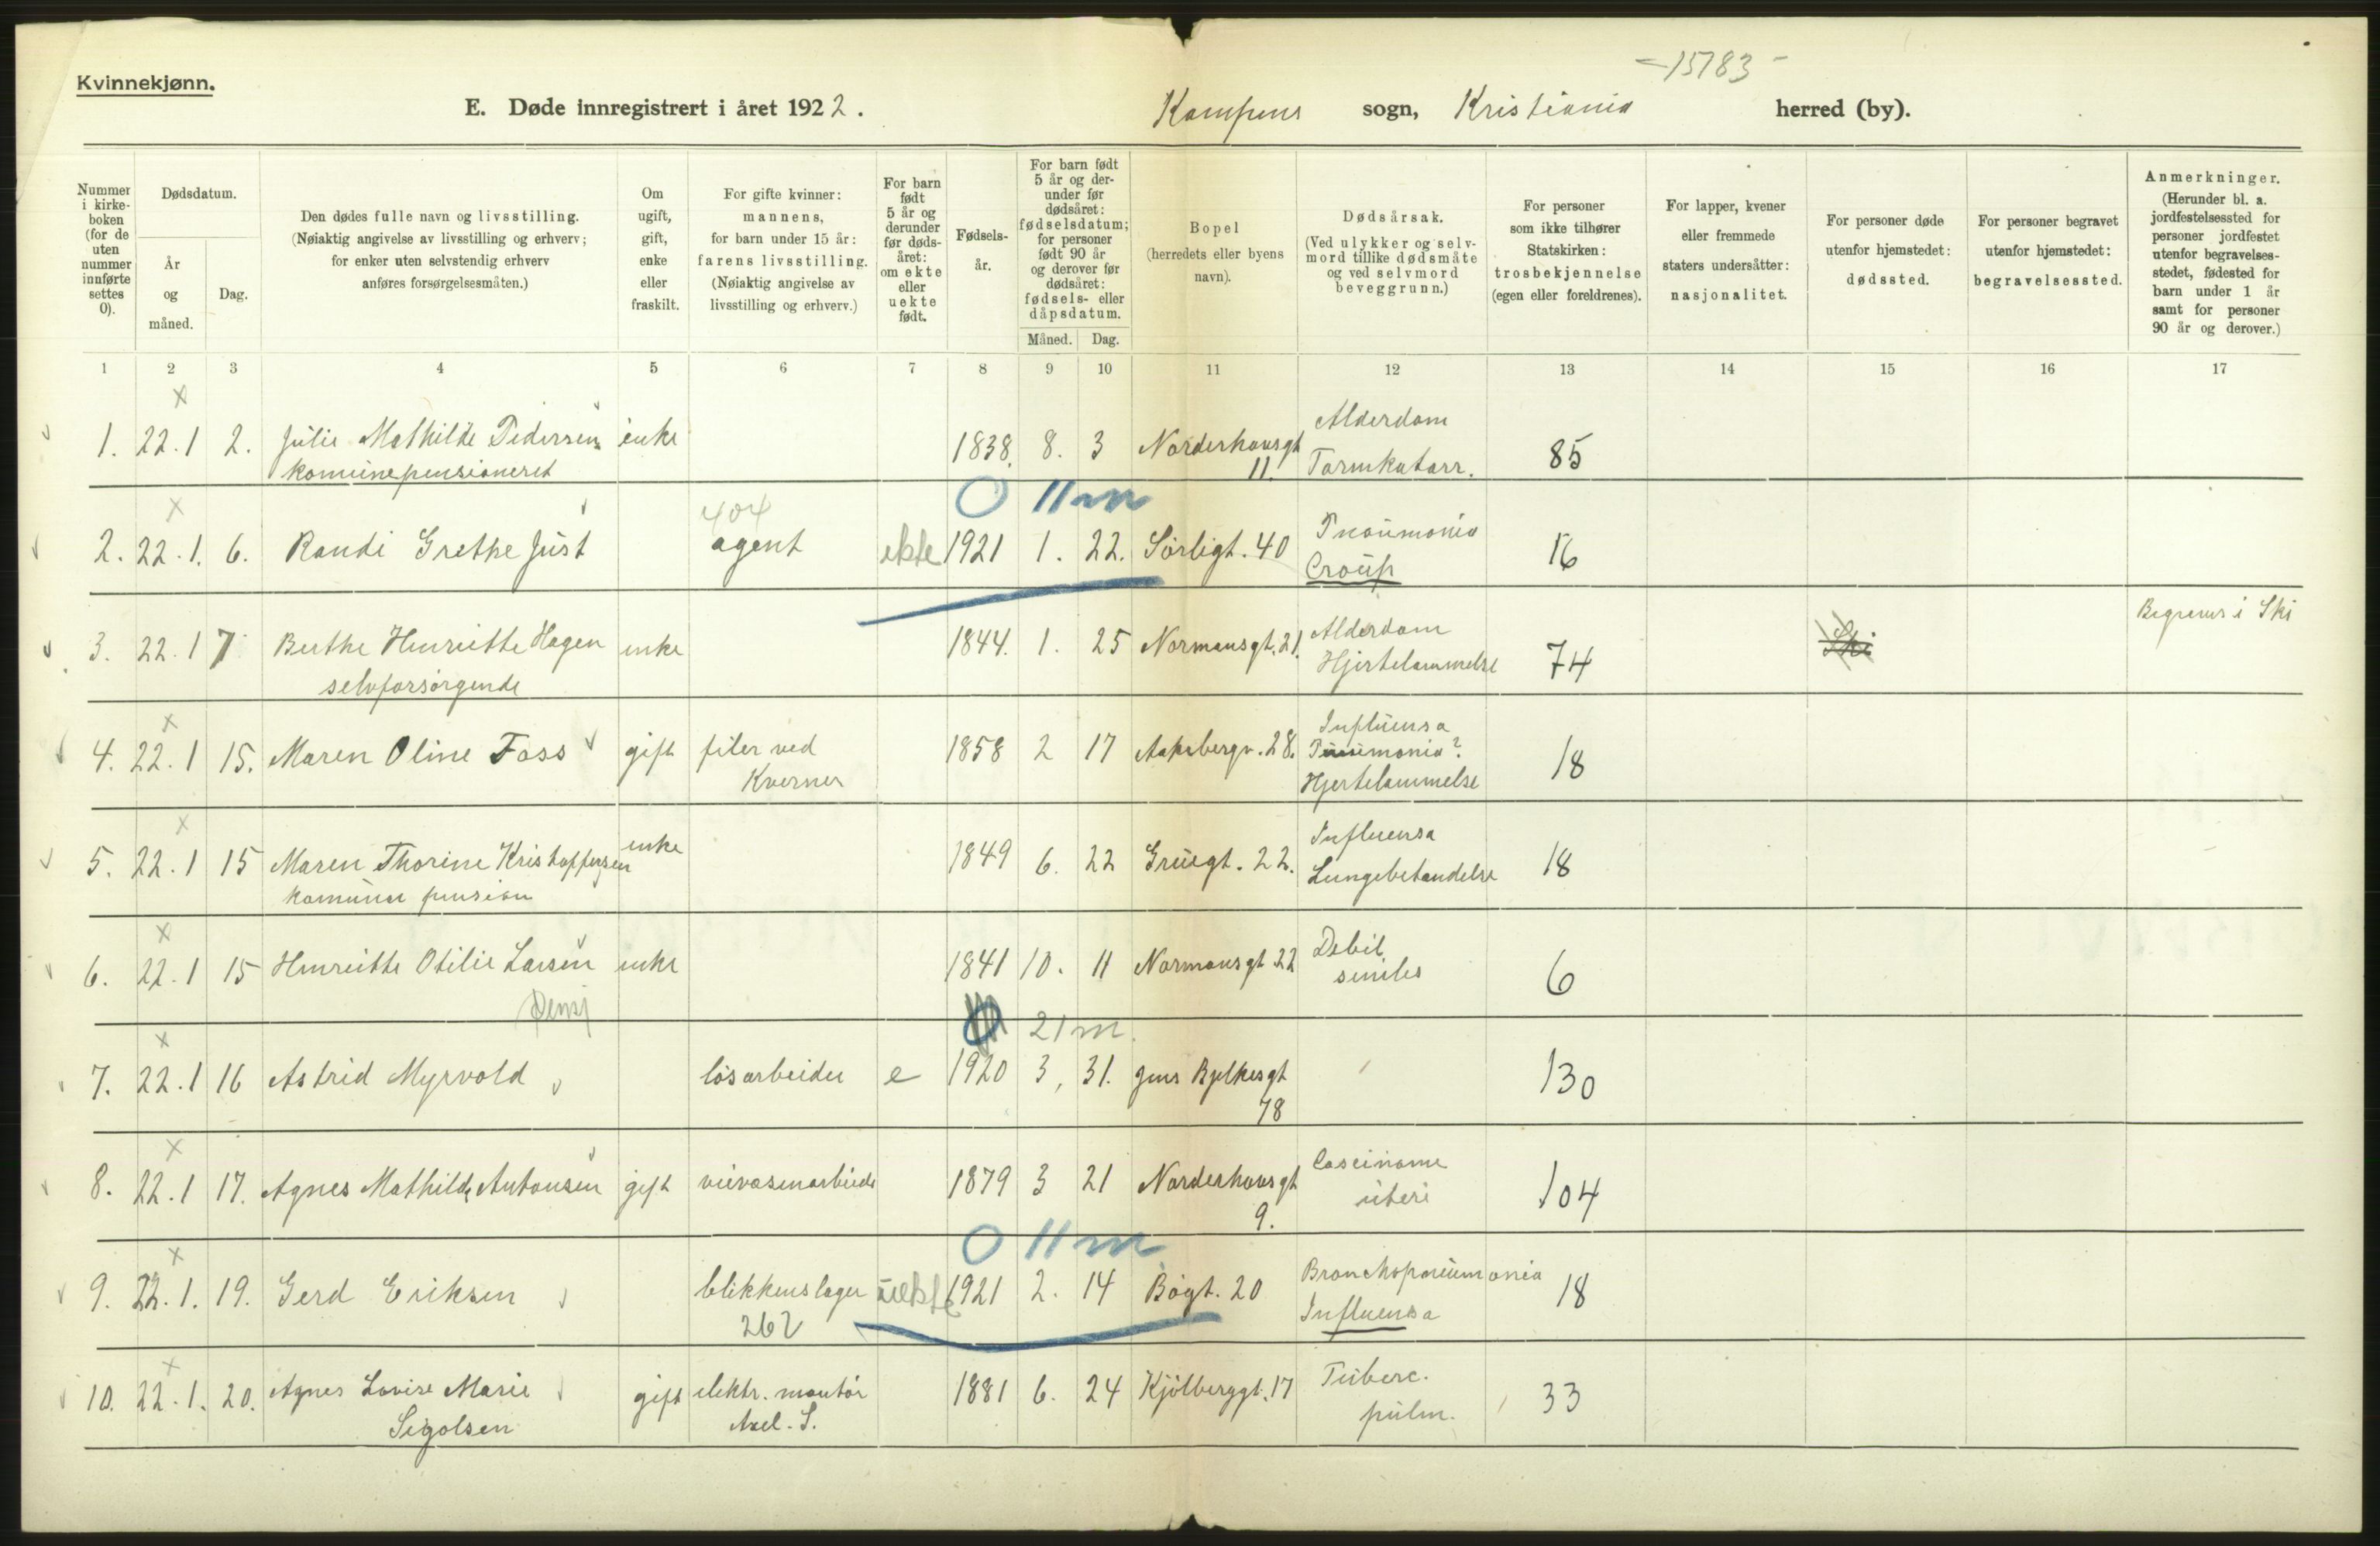 -15783-
Kvinnekjønn.
E. Døde innregistrert i året 1922. Kampens sogn, Kristiania herred (by).
Nummer i kirke-boken (for de uten nummer innførte settes 0).
Dødsdatum.
År og måned.
Dag.
Den dødes fulle navn og livsstilling.
(Nøiaktig angivelse av livsstilling og erhverv;
for enker uten selvstendig erhverv
anføres forsørgelsesmåten.)
Om ugift, gift, enke eller fraskilt.
For gifte kvinner:
mannens,
for barn under 15 år:
farens livsstilling.
(Nøiaktig angivelse av
livsstilling og erhverv.)
For barn født 5 år og derunder før døds-året: om ekte eller uekte født.
Fødsels-år.
For barn født 5 år og der-under før dødsåret: fødselsdatum; for personer født 90 år og derover før dødsåret: fødsels- eller dåpsdatum.
Måned. Dag.
Bopel
(herredets eller byens
navn).
Dødsårsak.
(Ved ulykker og selv-
mord tillike dødsmåte
og ved selvmord
beveggrunn.)
For personer
som ikke tilhører
Statskirken:
trosbekjennelse
(egen eller foreldrenes).
For lapper, kvener
eller fremmede
staters undersåtter:
nasjonalitet.
For personer døde
utenfor hjemstedet:
dødssted.
For personer begravet
utenfor hjemstedet:
begravelsessted.
Anmerkninger.
(Herunder bl. a.
jordfestelsessted for
personer jordfestet
utenfor begravelses-
stedet, fødested for
barn under 1 år
samt for personer
90 år og derover.)
1 2 3 4 5 6 7 8 9 10 11 12 13 14 15 16 17
x
1. 22.1 2. Julie Mathilde Pedersen enke 1838. 8. 3 Norderhovsgt Alderdom 85
komunepensioneret 11. Tarmkatarr.
O 11 m
x
404
2. 22.1. 6. Randi Grethe Just agent ekte 1921 1. 22. Sörligt. 40 Pneumonia 16
Croup
3. 22.1 7 Berthe Henriette Hagen enke 1844. 1. 25 Normansgt. 21. Alderdom 74 Ski Begraves i Ski
selvforsörgende Hjertelammelse
x
4. 22.1 15. Maren Oline Foss gift filer ved 1858 2 17 Aakebergv. 28. Influensa 18
Kverner Pneumonia?
Hjertelammelse
x
5. 22.1 15 Maren Thorine Kristoffersen enke 1849 6. 22 Gruegt. 22. Influensa 18
komunal pension Lungebetændelse
x
6. 22.1 15 Henriette Otilie Larsen enke 1841 10. 11 Normansgt 22 Debil. 6
Pensj seniles
O 21 m.
x
7. 22.1 16 Astrid Myrvold lösarbeider e 1920 3, 31. Jens Bjelkesgt 130
78
x
8. 22.1 17. Agnes Mathilde Antonsen gift veivæsenarbeide 1879 3 21 Norderhovsgt Carcinome 104
9. uteri
O 11 m
x
9. 22.1. 19. Gerd Eriksen blikkenslager uekte 1921 2. 14 Bögt. 20 Bronchopneumonia 18
262 Influensa
x
10. 22.1. 20. Agnes Lovise Marie gift elektr. montör 1881 6. 24 Kjölberggt. 17 Tuberc. 33
Sigolsen Axel. S. pulm.